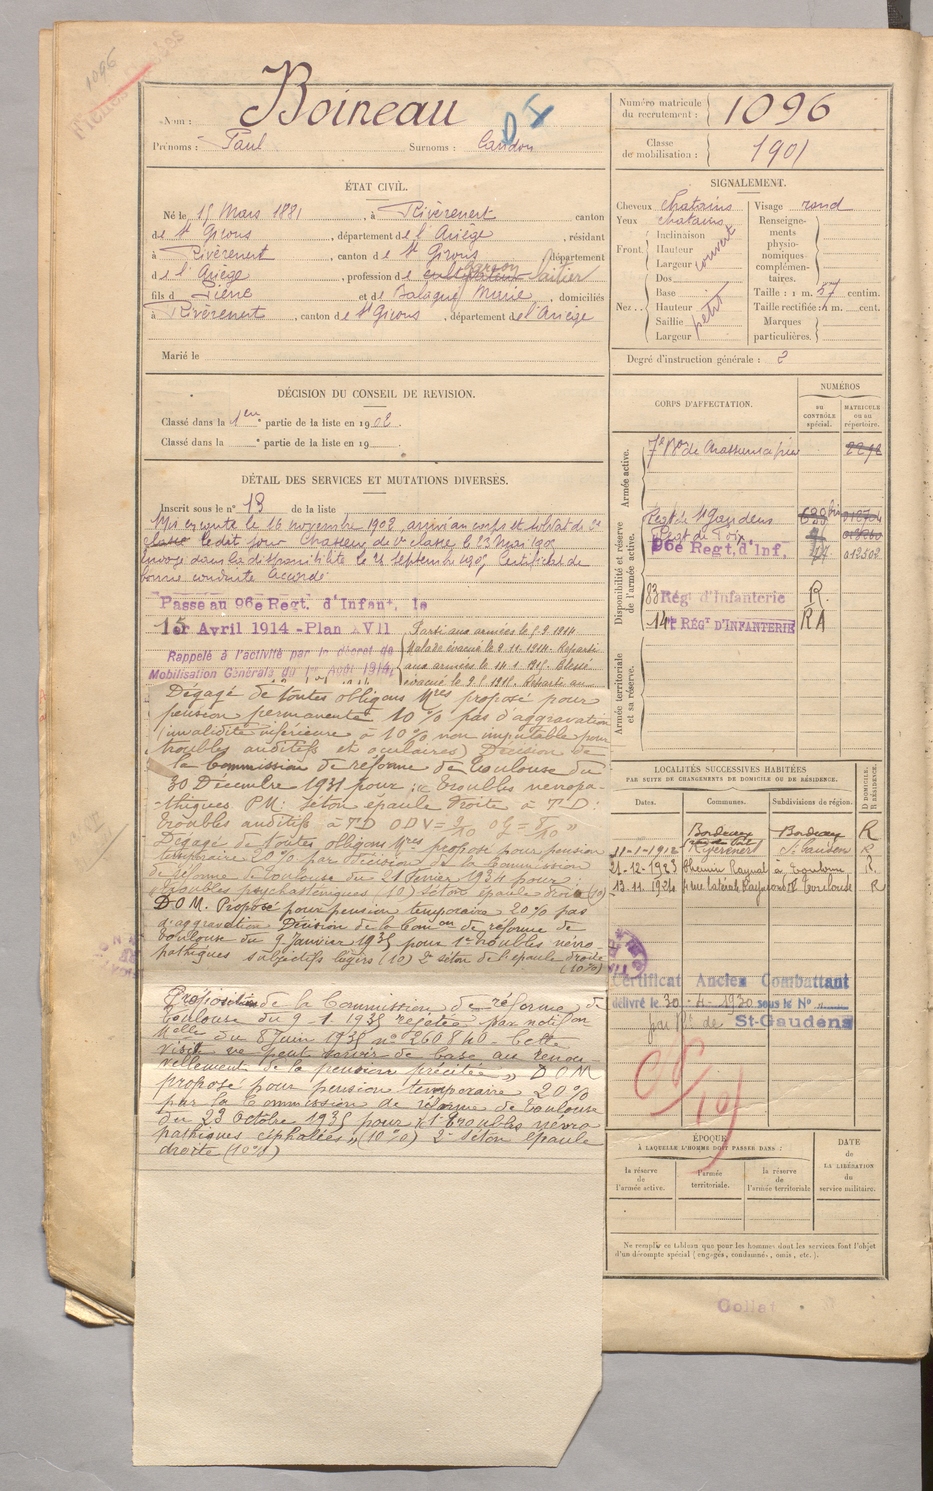 1096
Nom : Boineau
Prénoms : Paul Surnoms :
Numéro matricule du recrutement : 1096
Classe de mobilisation : 1901
ÉTAT CIVIL.
Né le 15 Mars 1881, à Rivèrenert canton
de St Girons, département de l'Ariège, résidant
à Rivèrenert, canton de St Girons département
de l'Ariège, profession de cultivateur garçon laitier
fils d Pierre et de Balagué Marie, domiciliés
à Rivèrenert, canton de St Girons, département de l'Ariège
Marié le
SIGNALEMENT.
Cheveux chatains Visage rond
Yeux chatains
Front. Inclinaison Hauteur Largeur couvert
Nez.. Dos Base Hauteur Saillie Largeur petit
Renseignements physionomiques complémentaires.
Taille : 1 m. 57 centim.
Taille rectifiée : 1 m. cent.
Marques particulières.
Degré d'instruction générale : 2
DÉCISION DU CONSEIL DE REVISION.
Classé dans la 1ere partie de la liste en 1902.
Classé dans la e partie de la liste en 19
DÉTAIL DES SERVICES ET MUTATIONS DIVERSES.
Inscrit sous le n° 13 de la liste
Mis en route le 16 novembre 1902, arrivé au corps et soldat de 2e
classe le dit jour Chasseur de 1re classe le 23 Mai 190
envoyé dans la disponibilité le 21 septembre 190 Certificat de
bonne conduite accordé
Passé au 96e Regt. d'Infant. le
1er Avril 1914 - Plan XVII
Rappelé à l'activité par le décret de
Mobilisation Générale du 1er Août 1914
Parti aux armées le 1914
Malade évacué le 9.11.1914. Reparti
aux armées le 14.1.1915. Blessé
évacué le 9.8.1918. Reparti au
Dégagé de toutes obligons Mres proposé pour
pension permanente 10% pas d'aggravation
(invalidité inférieure à 10% non imputable pour
troubles auditifs et oculaires) Décision de
la Commission de réforme de Toulouse du
30 Décembre 1931 pour : " Troubles névropa-
thiques. P.M: Séton épaule droite à T.D:
Troubles auditifs à TD
Dégagé de toutes obligons Mres proposé pour pension
temporaire 20% par décision de la Commission
de réforme de Toulouse du 21 février 1934 pour
troubles psychasthéniques (10) séton épaule droite (10)
D.O.M. Proposé pour pension temporaire 20% pas
d'aggravation Décision de la Comon de réforme de
Toulouse du 9 Janvier 1935 pour 1° troubles névro-
pathiques subjectifs légers (10) 2° séton de l'épaule droite
(10%)
Proposition de la Commission de réforme de
Toulouse du 9-1-1935 rejetée par notifon
Melle du 8 Juin 1935 n° 260840 - Cette
visite ne peut servir de base au renou-
vellement de la pension précitée " D O M
proposé pour pension temporaire 20%
par la Commission de réforme de Toulouse
du 23 Octobre 1935 pour "1° Troubles névro
pathiques céphalées " (10%) 2° séton épaule
droite (10%)
CORPS D'AFFECTATION.
NUMÉROS
au CONTRÔLE spécial.
MATRICULE ou au répertoire.
Armée active.
7e Bon de Chasseurs à pied
Disponibilité et réserve de l'armée active.
Regt de St Gaudens
Regt de Foix
96e Regt. d'Inf. 012502
83 Rég d'Infanterie R.
14e RÉGT D'INFANTERIE RA
Armée territoriale et sa réserve.
LOCALITÉS SUCCESSIVES HABITÉES
PAR SUITE DE CHANGEMENTS DE DOMICILE OU DE RÉSIDENCE.
Dates. Communes. Subdivisions de région. D DOMICILE. R RÉSIDENCE.
Bordeaux Bordeaux R
11-1-1912 Rivèrenert St Gaudens R
21-12-1923 Chemin Raynal à Toulouse R.
13.11.1924 Toulouse R
Certificat Ancien Combattant
délivré le 30-4-1930 sous le N°
par de St-Gaudens
ÉPOQUE
À LAQUELLE L'HOMME DOIT PASSER DANS :
la réserve de l'armée active.
l'armée territoriale.
la réserve de l'armée territoriale
DATE de LA LIBÉRATION du service militaire.
Ne remplir ce tableau que pour les hommes dont les services font l'objet
d'un décompte spécial (engagés, condamnés, omis, etc.).